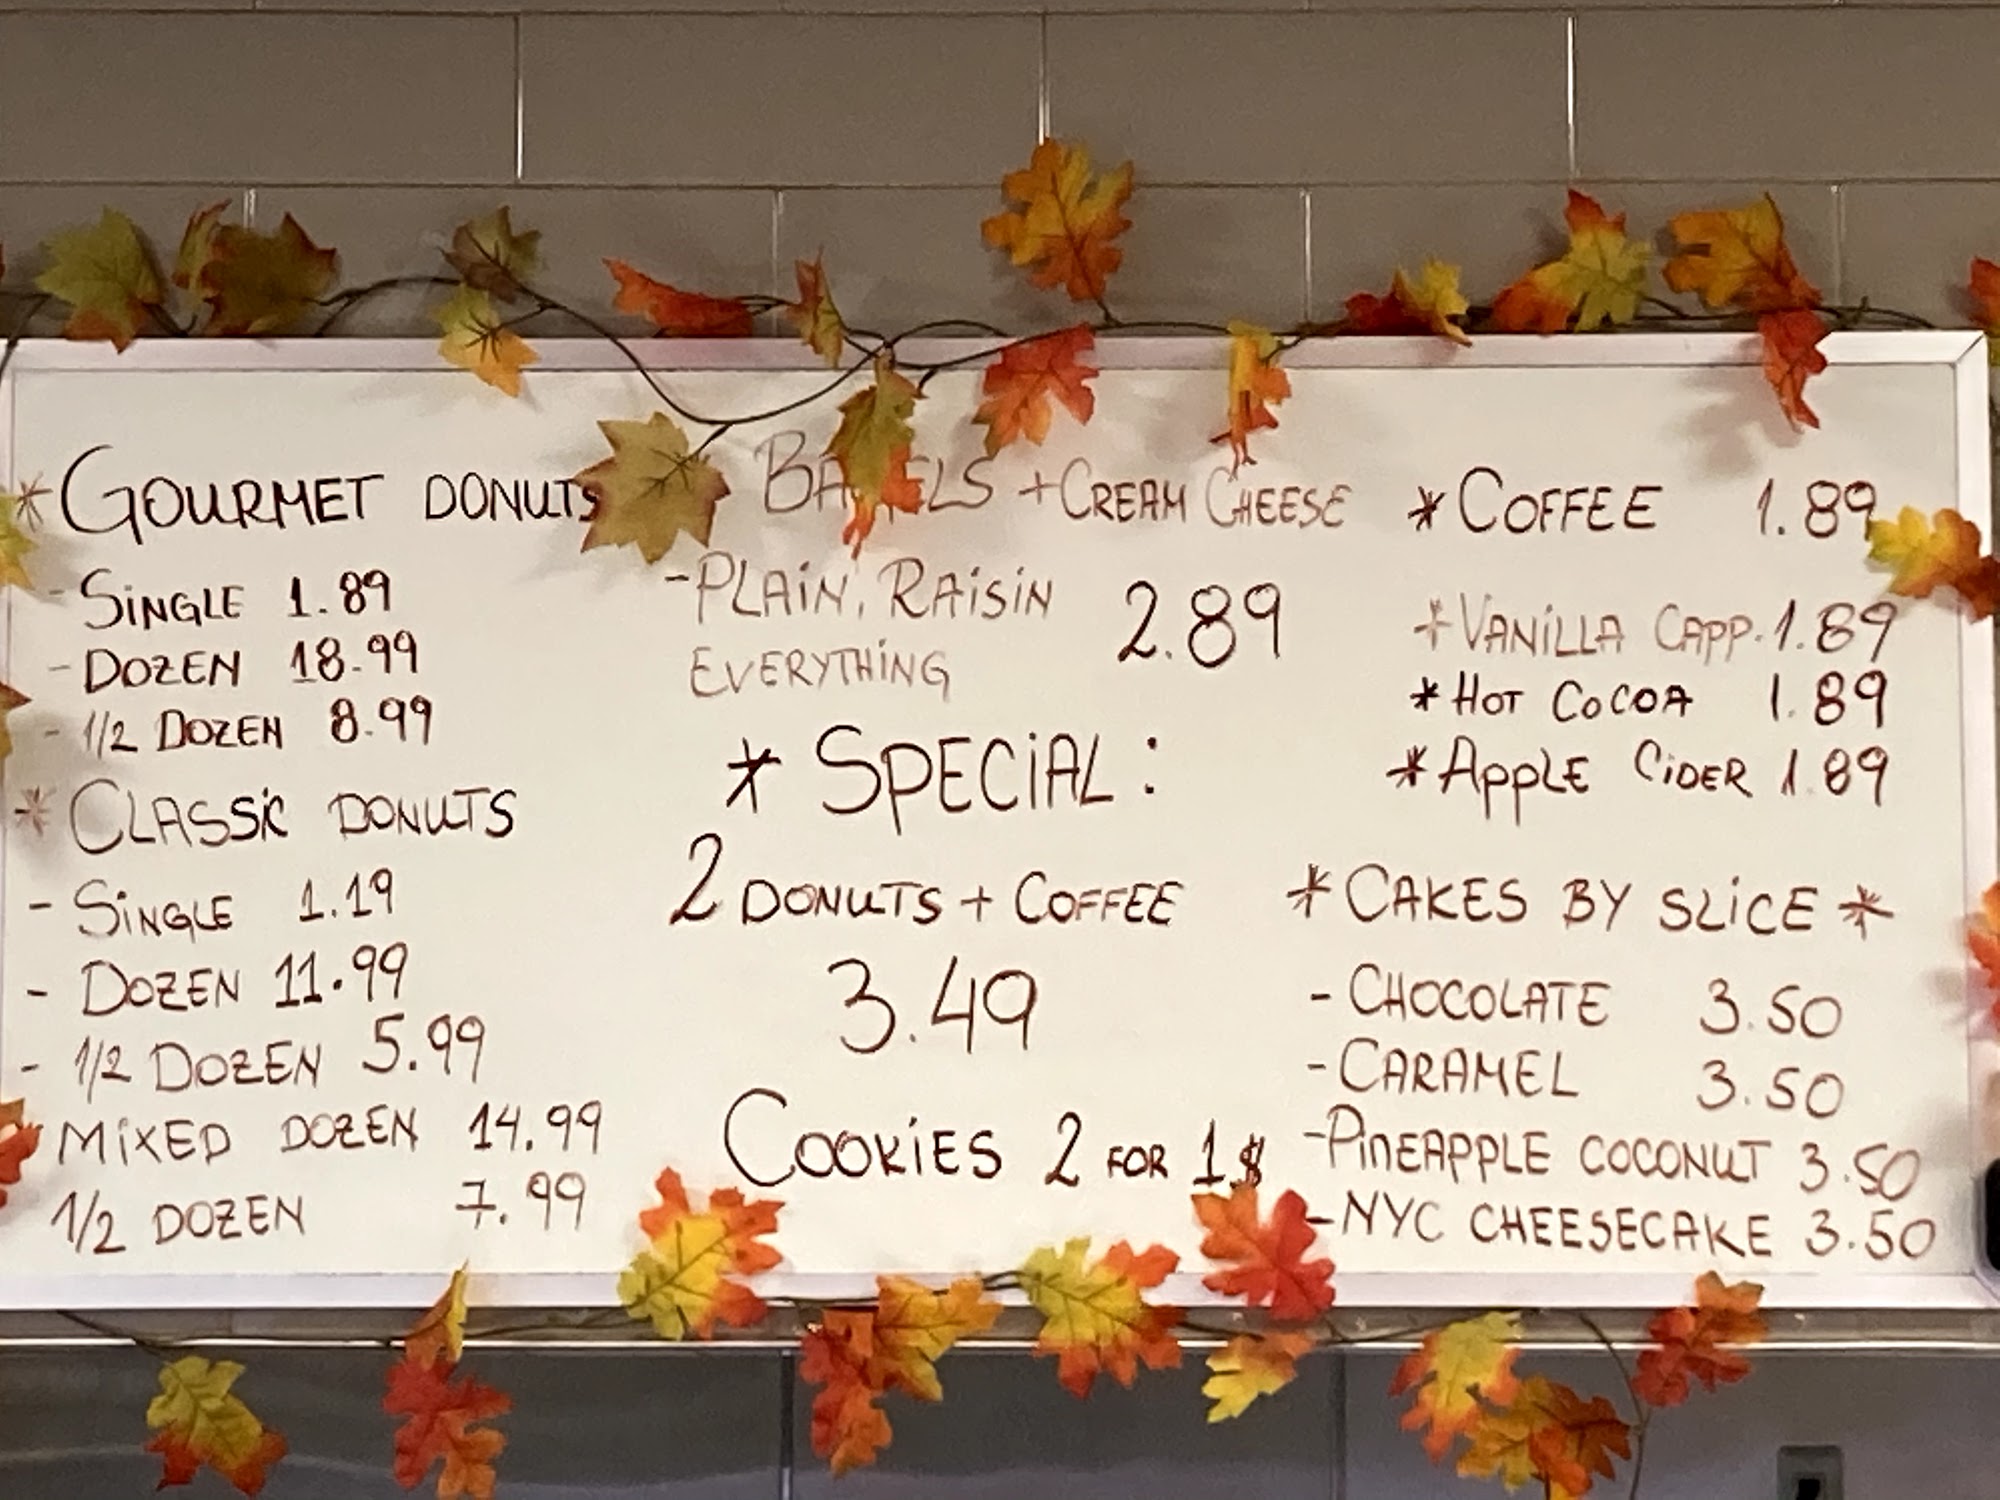 * GOURMET DONUTS
- SINGLE 1.89
- DOZEN 18.99
- 1/2 DOZEN 8.99
* CLASSIC DONUTS
- SINGLE 1.19
- DOZEN 11.99
- 1/2 DOZEN 5.99
MIXED DOZEN 14.99
1/2 DOZEN 7.99
BAGELS + CREAM CHEESE
- PLAIN, RAISIN 2.89
EVERYTHING
* SPECIAL:
2 DONUTS + COFFEE
3.49
COOKIES 2 FOR 1$
* COFFEE 1.89
* VANILLA CAPP. 1.89
* HOT COCOA 1.89
* APPLE CIDER 1.89
* CAKES BY SLICE *
- CHOCOLATE 3.50
- CARAMEL 3.50
- PINEAPPLE COCONUT 3.50
- NYC CHEESECAKE 3.50